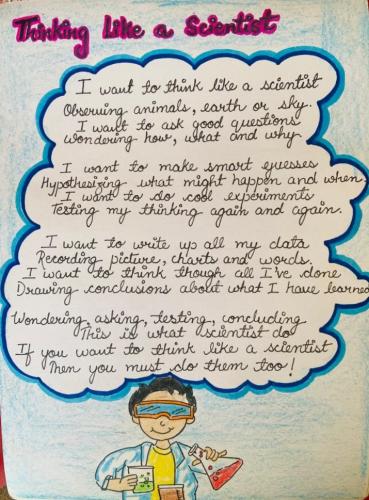 Thinking Like a Scientist
I want to think like a scientist
Observing animals, earth or sky.
I want to ask good questions
Wondering how, what and why.
I want to make smart guesses
Hypothesizing what might happen and when
I want to do cool experiments
Testing my thinking again and again.
I want to write up all my data
Recording picture, charts and words.
I want to think though all I've done
Drawing conclusions about what I have learned
Wondering, asking, testing, concluding
This is what scientist do
If you want to think like a scientist
Then you must do them too!